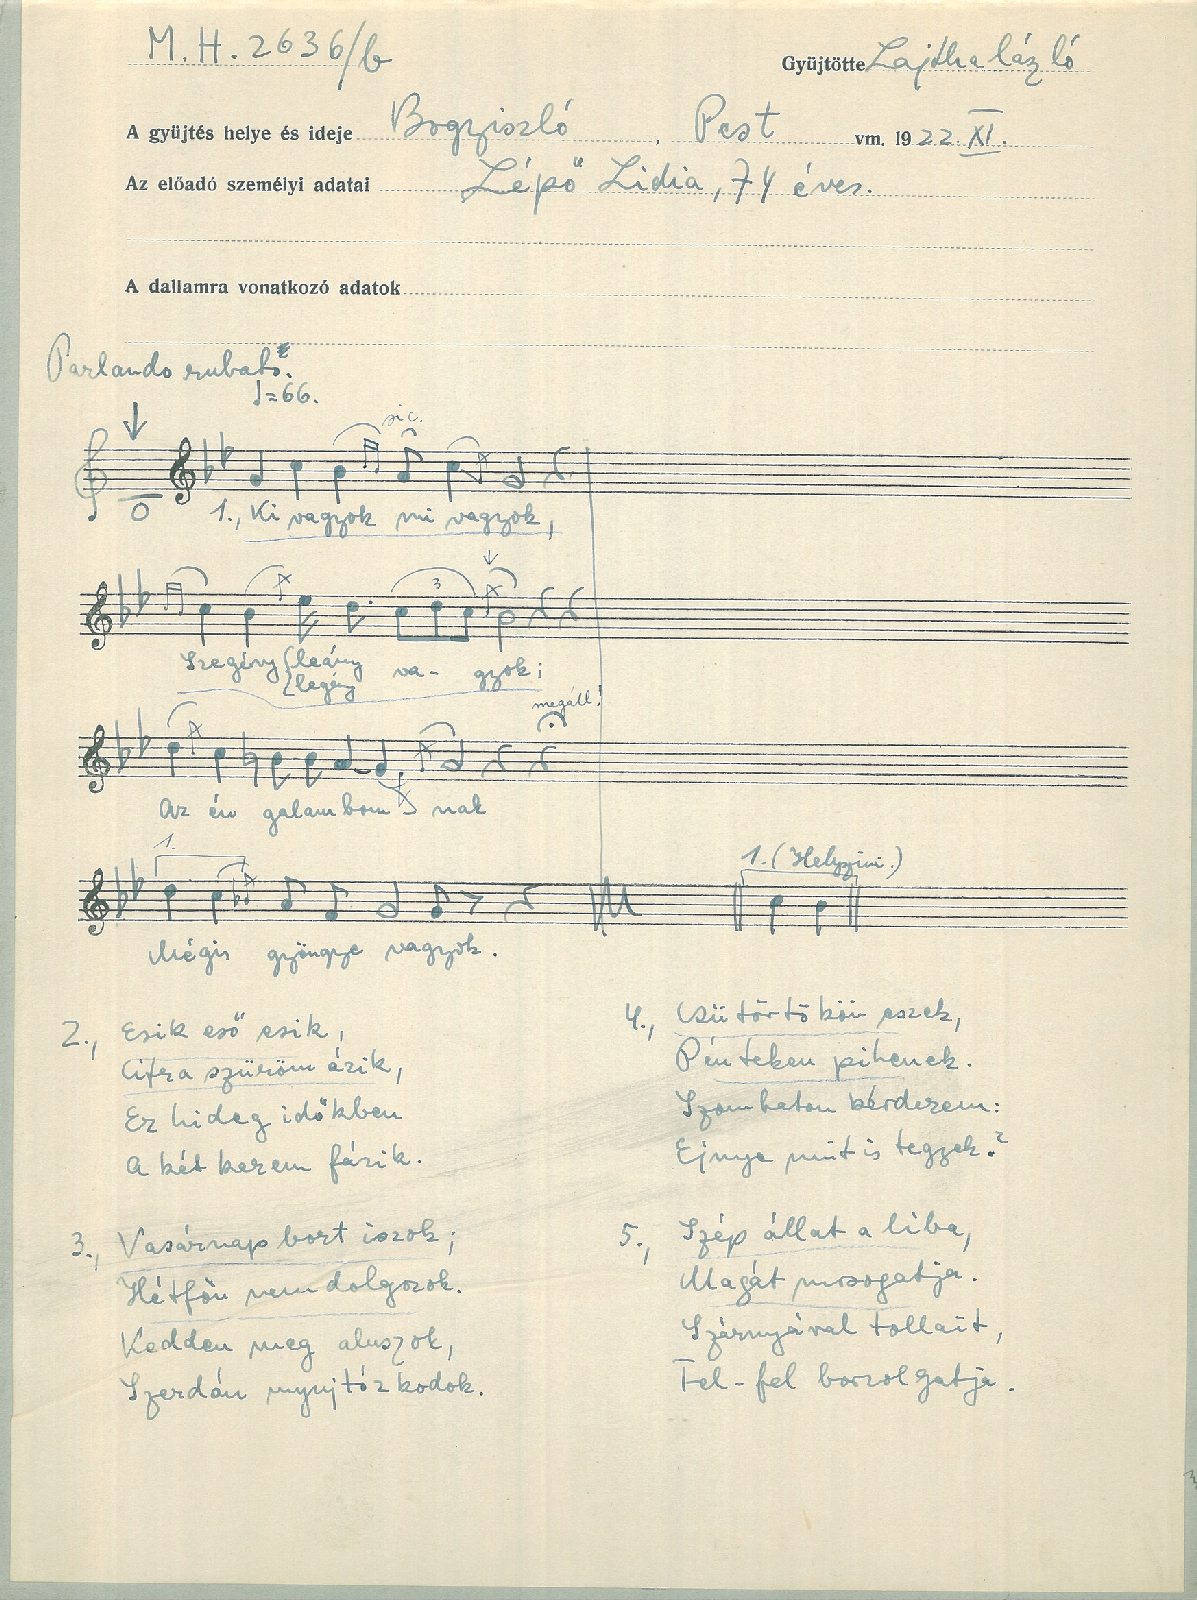 M.H. 2636/b
Gyüjtötte Lajtha László
A gyüjtés helye és ideje Bogyiszló, Pest vm. 1922. XI.
Az előadó személyi adatai Lépő Lidia, 74 éves.
A dallamra vonatkozó adatok
Parlando rubato.
♩=66.
sic.
1., Ki vagyok mi vagyok,
3
Szegény {leány va- gyok;
{legény
megáll!
Az én galambom nak
1.
1. (Helyszíni.)
Mégis gyöngye vagyok.
2., Esik eső esik,
Cifra szüröm ázik,
Ez hideg időkben
A két kezem fázik.
3., Vasárnap bort iszok;
Hétfőn nem dolgozok.
Kedden meg aluszok,
Szerdán nyujtózkodok.
4., Csütörtökön eszek,
Pénteken pihenek.
Szombaton kérdezem:
Ejnye mit is tegyek?
5., Szép állat a liba,
Magát mosogatja.
Szárnyával tollait,
Fel-fel borzolgatja.